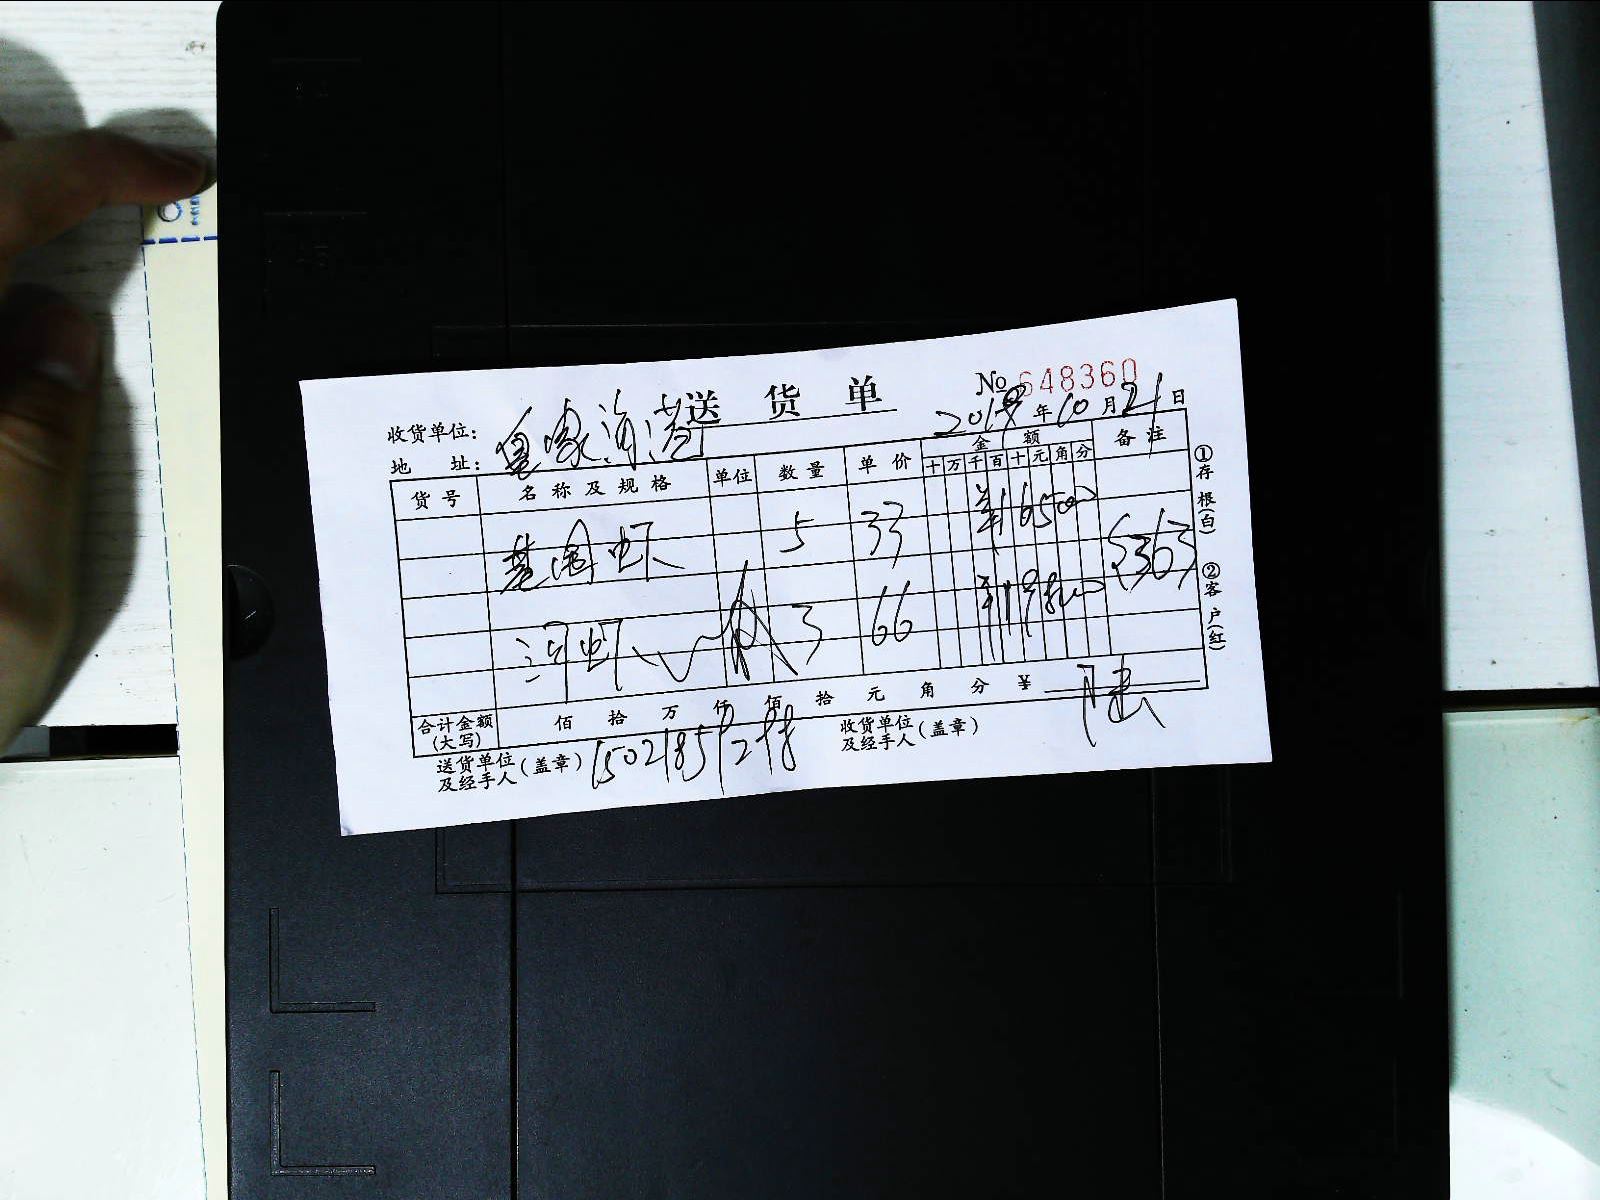 送货单
No 648360
收货单位：
地 址：
年 10 月 21 日
货号 名称及规格 单位 数量 单价 金额 备注
十 万 千 百 十 元 角 分
基围虾 5 33 165 00
363
河虾 3 66 198 00
合计金额（大写） 佰 拾 万 仟 佰 拾 元 角 分 ¥
送货单位及经手人（盖章）
收货单位及经手人（盖章）
①存根（白）
②客户（红）